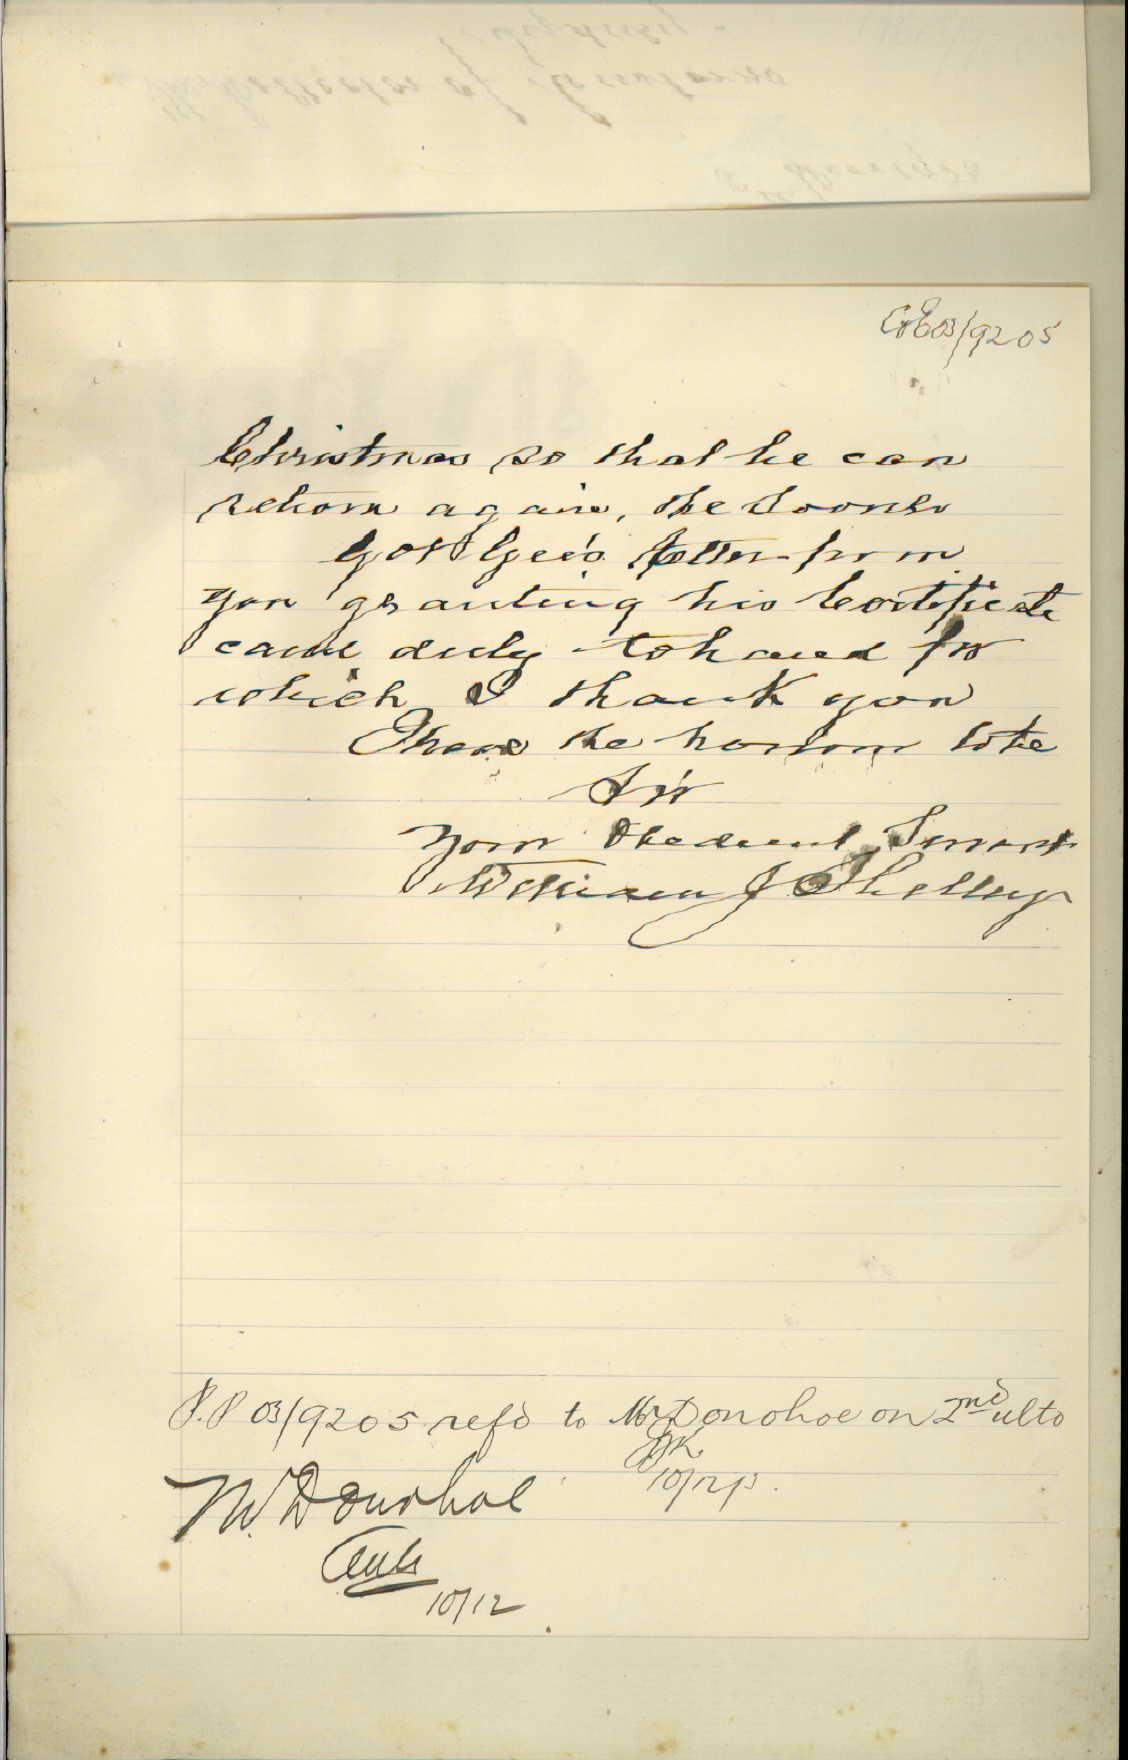 C&E03/9205
Christmas so that he can
return again, the Sooner
Got Gee's letter from
you granting his Certificate
came duly to hand for
which I thank you
I have the honour to be
Sir
Your Obedient Servant
William J Shelley
P.P 03/9205 refd to Mr Donohoe on 2nd ulto
10/12/3.
Mr Donohoe
10/12